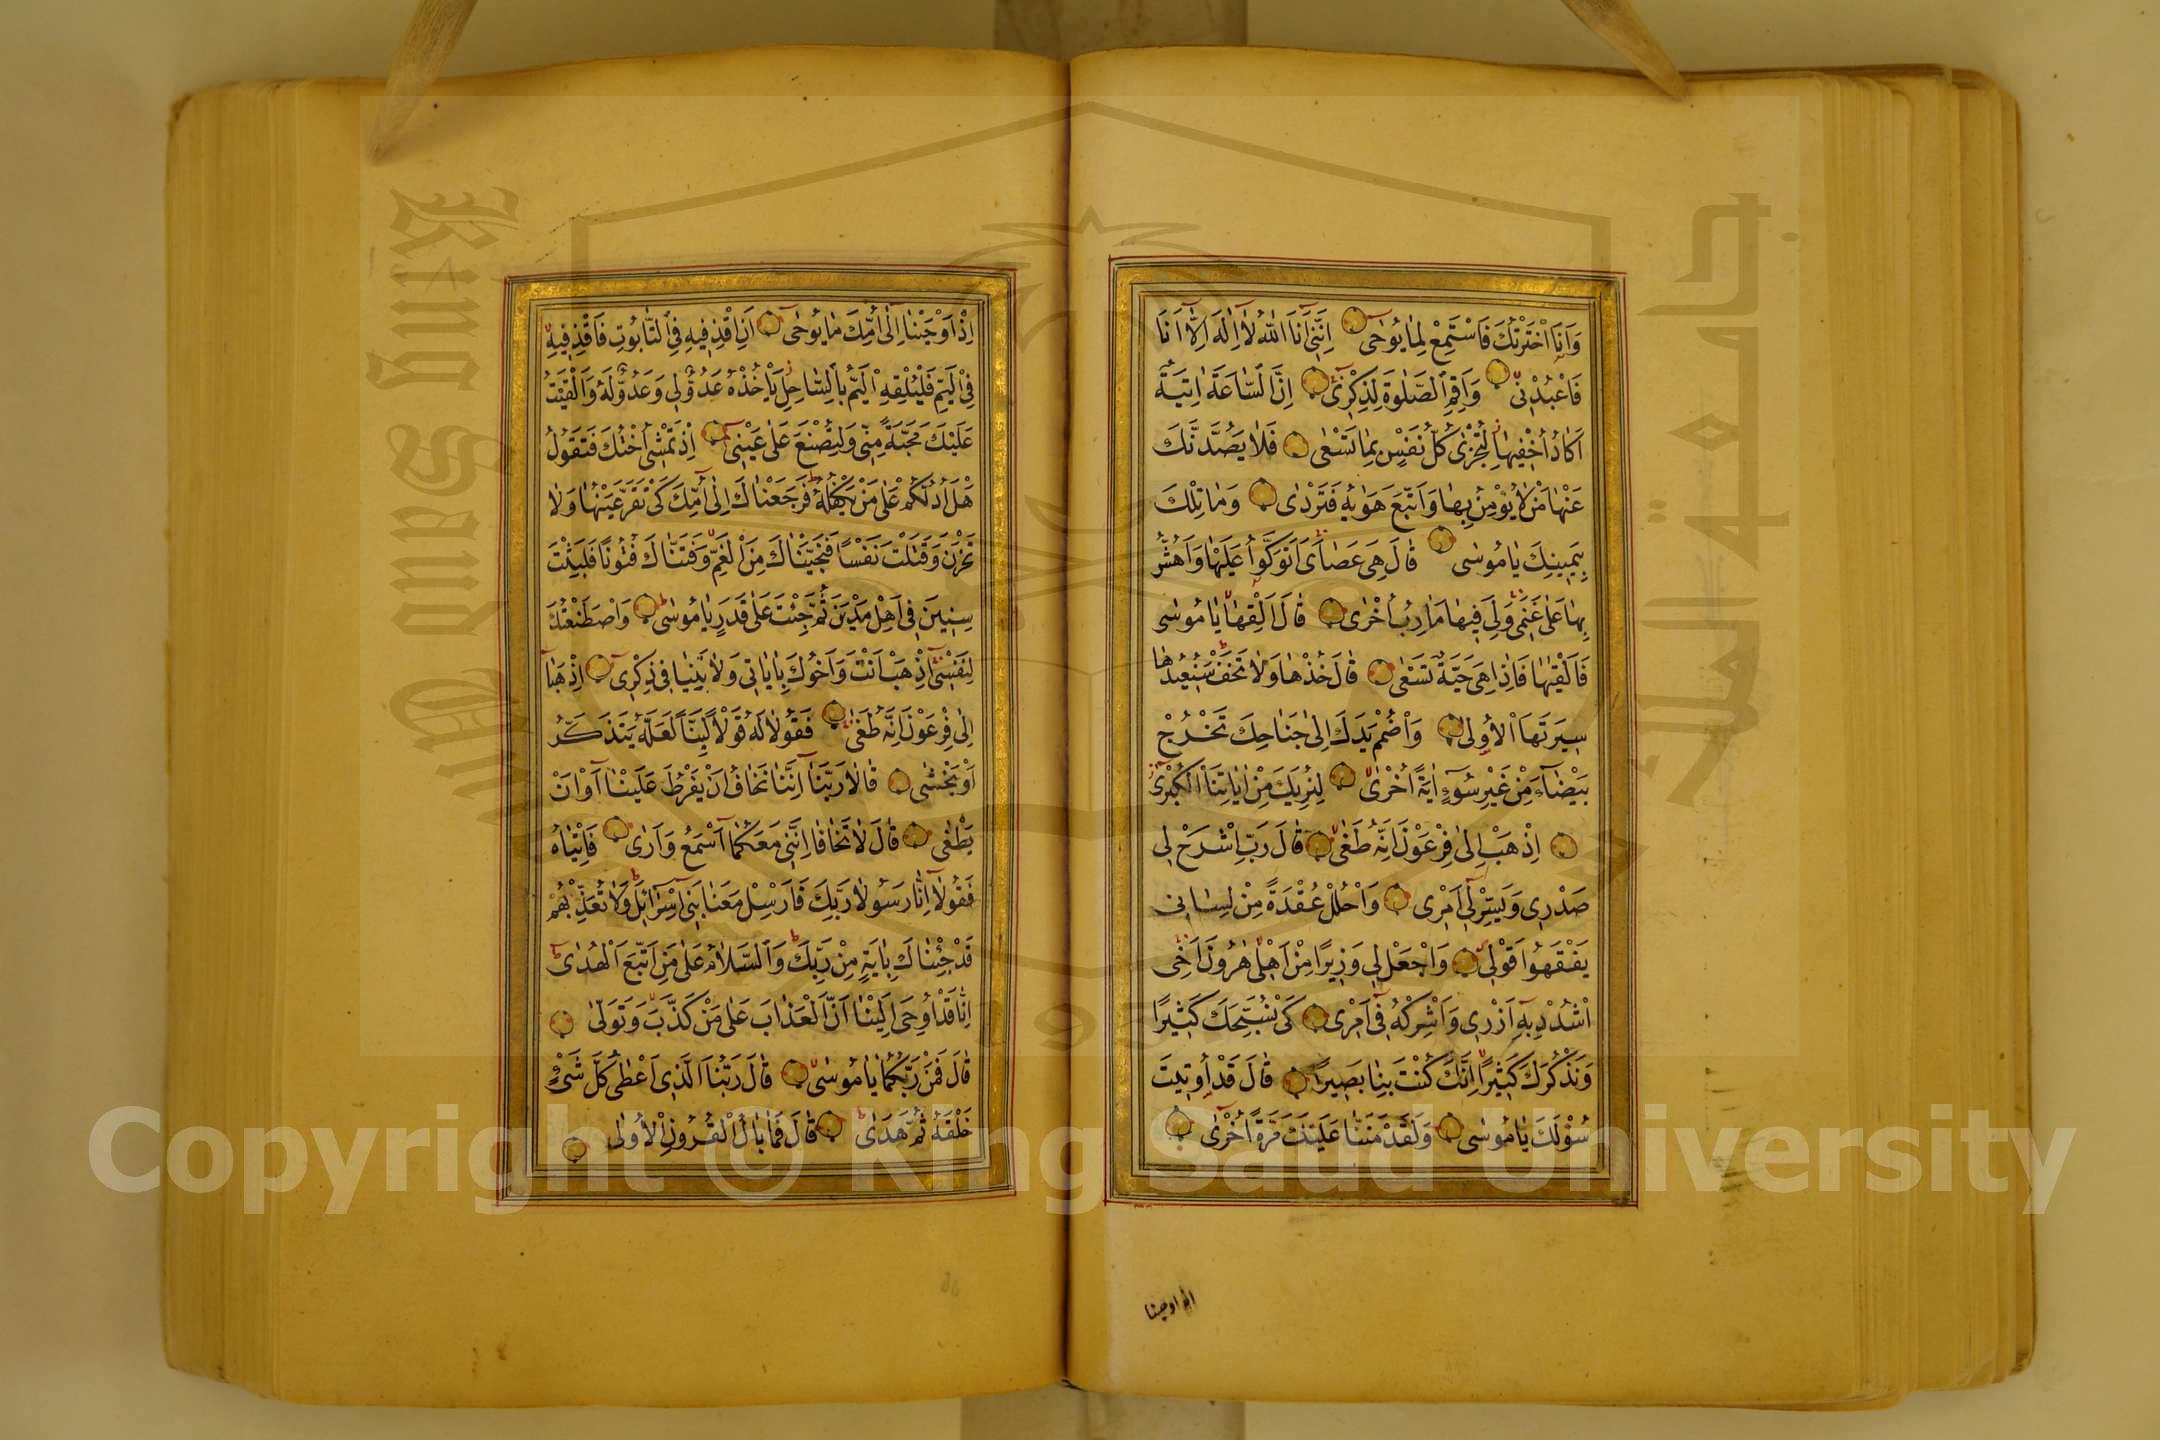 وَاَنَا اخْتَرْتُكَ فَاسْتَمِعْ لِمَا يُوحٰى اِنَّنِى اَنَا اللّٰهُ لَا اِلٰهَ اِلَّا اَنَا
فَاعْبُدْنِى وَاَقِمِ الصَّلٰوةَ لِذِكْرِى اِنَّ السَّاعَةَ اٰتِيَةٌ
اَكَادُ اُخْفِيهَا لِتُجْزٰى كُلُّ نَفْسٍ بِمَا تَسْعٰى فَلَا يَصُدَّنَّكَ
عَنْهَا مَنْ لَا يُؤْمِنُ بِهَا وَاتَّبَعَ هَوٰيهُ فَتَرْدٰى وَمَا تِلْكَ
بِيَمِينِكَ يَا مُوسٰى قَالَ هِىَ عَصَاىَ اَتَوَكَّؤُا عَلَيْهَا وَاَهُشُّ
بِهَا عَلٰى غَنَمِى وَلِىَ فِيهَا مَاٰرِبُ اُخْرٰى قَالَ اَلْقِهَا يَا مُوسٰى
فَاَلْقٰيهَا فَاِذَا هِىَ حَيَّةٌ تَسْعٰى قَالَ خُذْهَا وَلَا تَخَفْ سَنُعِيدُهَا
سِيرَتَهَا الْاُولٰى وَاضْمُمْ يَدَكَ اِلٰى جَنَاحِكَ تَخْرُجْ
بَيْضَاءَ مِنْ غَيْرِ سُوءٍ اٰيَةً اُخْرٰى لِنُرِيَكَ مِنْ اٰيَاتِنَا الْكُبْرٰى
اِذْهَبْ اِلٰى فِرْعَوْنَ اِنَّهُ طَغٰى قَالَ رَبِّ اشْرَحْ لِى
صَدْرِى وَيَسِّرْ لِى اَمْرِى وَاحْلُلْ عُقْدَةً مِنْ لِسَانِى
يَفْقَهُوا قَوْلِى وَاجْعَلْ لِى وَزِيرًا مِنْ اَهْلِى هٰرُونَ اَخِى
اشْدُدْ بِهِ اَزْرِى وَاَشْرِكْهُ فِى اَمْرِى كَىْ نُسَبِّحَكَ كَثِيرًا
وَنَذْكُرَكَ كَثِيرًا اِنَّكَ كُنْتَ بِنَا بَصِيرًا قَالَ قَدْ اُوتِيتَ
سُؤْلَكَ يَا مُوسٰى وَلَقَدْ مَنَنَّا عَلَيْكَ مَرَّةً اُخْرٰى
اذ اوحينا
اِذْ اَوْحَيْنَا اِلٰى اُمِّكَ مَا يُوحٰى اَنِ اقْذِفِيهِ فِى التَّابُوتِ فَاقْذِفِيهِ
فِى الْيَمِّ فَلْيُلْقِهِ الْيَمُّ بِالسَّاحِلِ يَأْخُذْهُ عَدُوٌّ لِى وَعَدُوٌّ لَهُ وَاَلْقَيْتُ
عَلَيْكَ مَحَبَّةً مِنِّى وَلِتُصْنَعَ عَلٰى عَيْنِى اِذْ تَمْشِى اُخْتُكَ فَتَقُولُ
هَلْ اَدُلُّكُمْ عَلٰى مَنْ يَكْفُلُهُ فَرَجَعْنَاكَ اِلٰى اُمِّكَ كَىْ تَقَرَّ عَيْنُهَا وَلَا
تَحْزَنَ وَقَتَلْتَ نَفْسًا فَنَجَّيْنَاكَ مِنَ الْغَمِّ وَفَتَنَّاكَ فُتُونًا فَلَبِثْتَ
سِنِينَ فِى اَهْلِ مَدْيَنَ ثُمَّ جِئْتَ عَلٰى قَدَرٍ يَا مُوسٰى وَاصْطَنَعْتُكَ
لِنَفْسِى اِذْهَبْ اَنْتَ وَاَخُوكَ بِاٰيَاتِى وَلَا تَنِيَا فِى ذِكْرِى اِذْهَبَا
اِلٰى فِرْعَوْنَ اِنَّهُ طَغٰى فَقُولَا لَهُ قَوْلًا لَيِّنًا لَعَلَّهُ يَتَذَكَّرُ
اَوْ يَخْشٰى قَالَا رَبَّنَا اِنَّنَا نَخَافُ اَنْ يَفْرُطَ عَلَيْنَا اَوْ اَنْ
يَطْغٰى قَالَ لَا تَخَافَا اِنَّنِى مَعَكُمَا اَسْمَعُ وَاَرٰى فَاْتِيَاهُ
فَقُولَا اِنَّا رَسُولَا رَبِّكَ فَاَرْسِلْ مَعَنَا بَنِى اِسْرَائِلَ وَلَا تُعَذِّبْهُمْ
قَدْ جِئْنَاكَ بِاٰيَةٍ مِنْ رَبِّكَ وَالسَّلَامُ عَلٰى مَنِ اتَّبَعَ الْهُدٰى
اِنَّا قَدْ اُوحِىَ اِلَيْنَا اَنَّ الْعَذَابَ عَلٰى مَنْ كَذَّبَ وَتَوَلّٰى
قَالَ فَمَنْ رَبُّكُمَا يَا مُوسٰى قَالَ رَبُّنَا الَّذِى اَعْطٰى كُلَّ شَىْءٍ
خَلْقَهُ ثُمَّ هَدٰى قَالَ فَمَا بَالُ الْقُرُونِ الْاُولٰى
King Saud University
جامعة الملك سعود
1957
Copyright © King Saud University